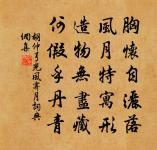 胸懷自灑落
風月特寓形
造物無盡藏
何假手丹青
胡仲弓光風霽月詞典